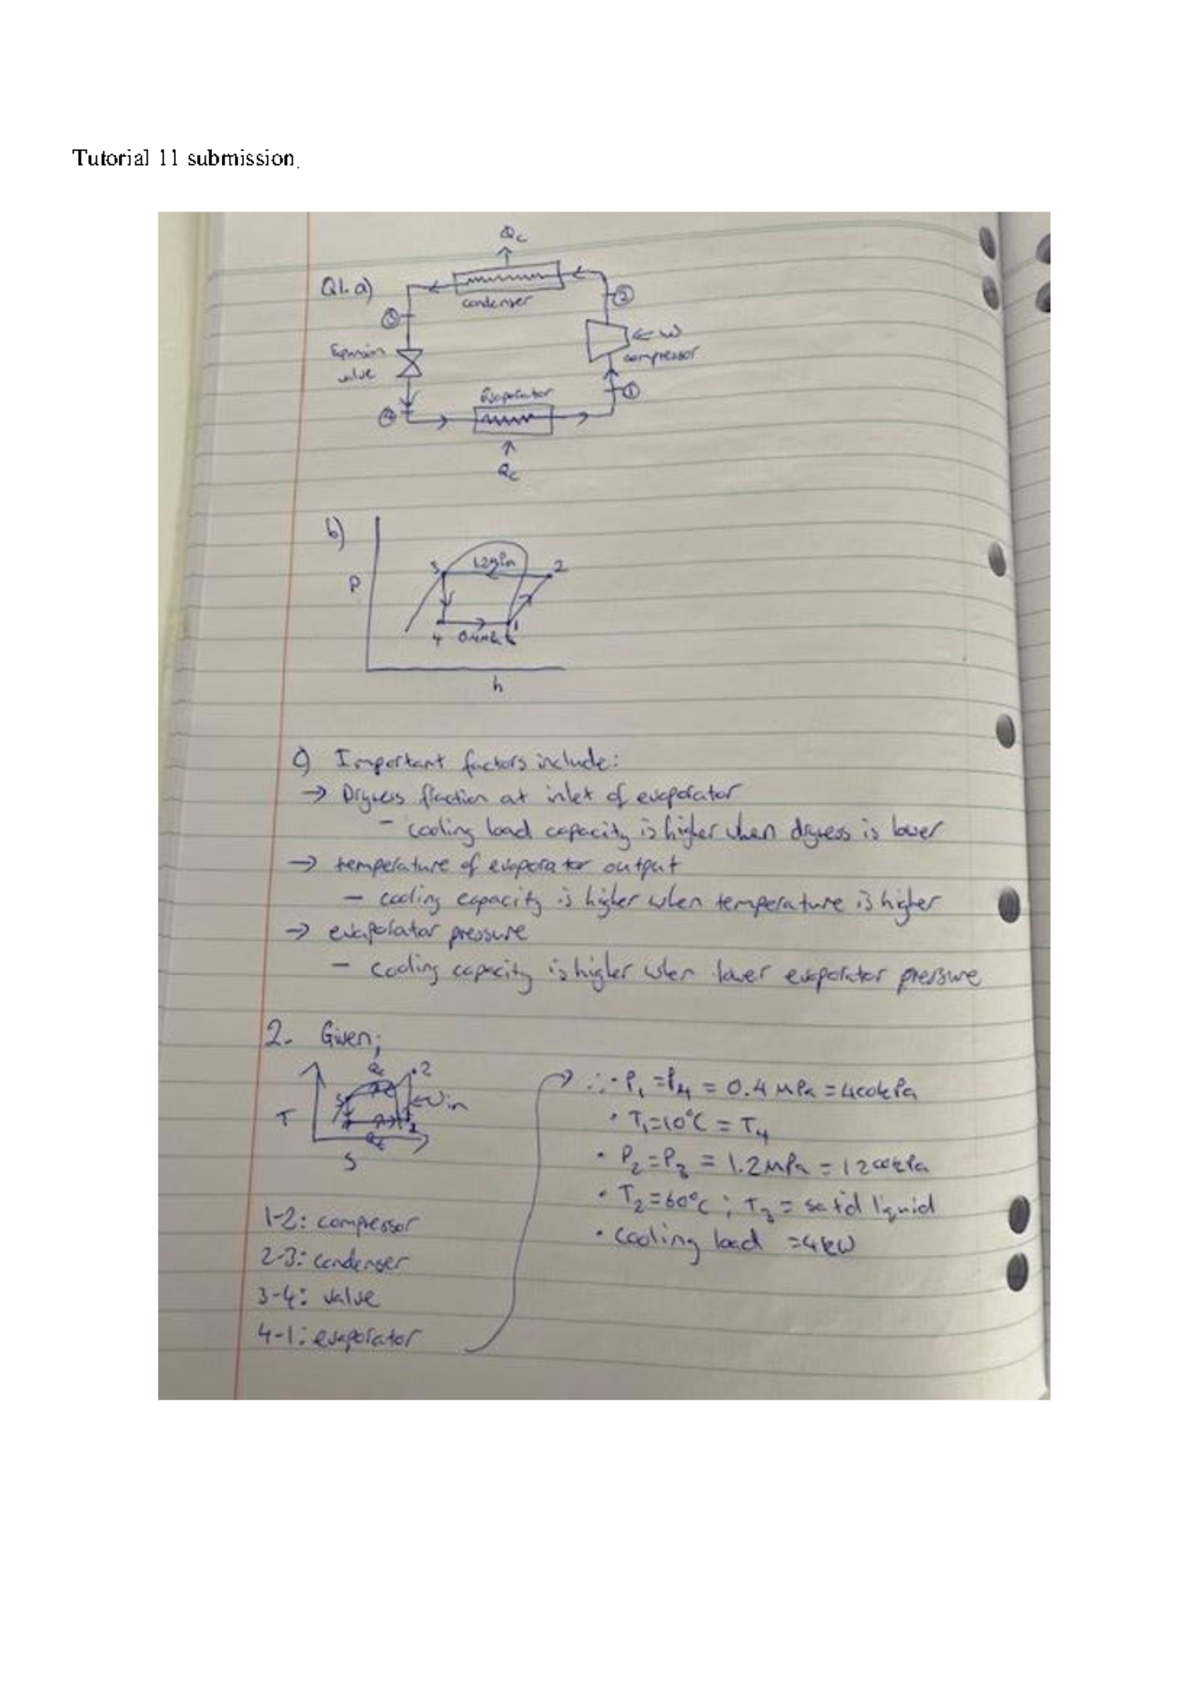 Tutorial 11 submission.
Q1. a)
Qc
condenser
②
③
← W
compressor
Expansion
valve
①
Evaporator
④
Qc
b)
P
3
1.2MPa
2
4
1
h
c) Important factors include:
→ Dryness fraction at inlet of evaporator
- cooling load capacity is higher when dryness is lower
→ temperature of evaporator output
- cooling capacity is higher when temperature is higher
→ evaporator pressure
- cooling capacity is higher when lower evaporator pressure
2. Given;
2
Win
T
S
1-2: compressor
2-3: condenser
3-4: valve
4-1: evaporator
→ ∴ • P₁ = P₄ = 0.4 MPa = 400kPa
• T₁=10°C = T₄
• P₂ = P₃ = 1.2MPa = 1200kPa
• T₂ = 60°C ; T₃ = sat'd liquid
• cooling load = 4kW